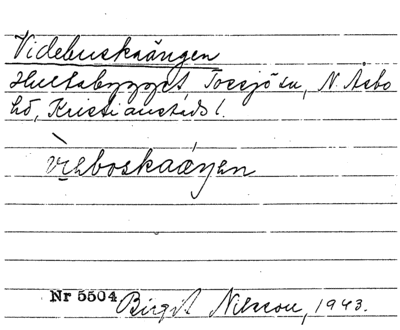 Videbuskaängen
Hultabygget, Tossjö sn, N. Åsbo
hd, Kristianstads l.
vieboskaáŋen
Nr 5504 Birgit Nilsson, 1943.